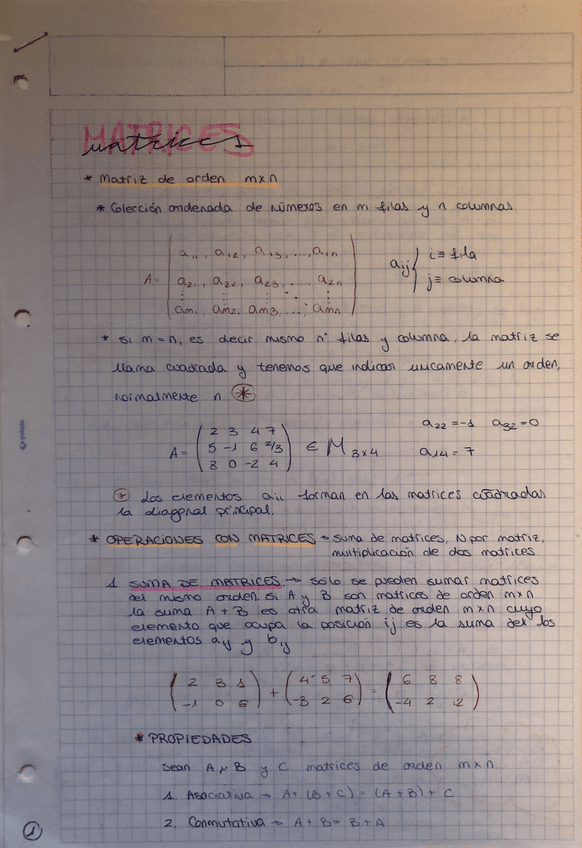 MATRICES
matrices
* Matriz de orden mxn
* Colección ordenada de números en m filas y n columnas
a₁₁, a₁₂, a₁₃, ..., a₁n
A= a₂₁, a₂₂, a₂₃, ..., a₂n
⋮ ⋮ ⋮ ⋱ ⋮
am₁, am₂, am₃, ..., amn
aij { i ≡ fila
j ≡ columna
* Si m=n, es decir mismo nº filas y columna, la matriz se
llama cuadrada y tenemos que indicar unicamente un orden,
normalmente n *
2 3 4 7
A= 5 -1 6 2/3 ∈ M 3x4
8 0 -2 4
a₂₂=-1 a₃₂=0
a₁₄=7
* Los elementos aii forman en las matrices cuadradas
la diagonal principal.
* OPERACIONES CON MATRICES → suma de matrices, N por matriz,
multiplicación de dos matrices
1 SUMA DE MATRICES → solo se pueden sumar matrices
del mismo orden. Si A y B son matrices de orden mxn
la suma A+B es otra matriz de orden mxn cuyo
elemento que ocupa la posición ij es la suma de los
elementos aij y bij
(2 3 1) + (4 5 7) = (6 8 8)
(-1 0 6) (-3 2 6) (-4 2 12)
* PROPIEDADES
Sean A, B y C matrices de orden mxn
1. Asociativa → A+(B+C)=(A+B)+C
2. Conmutativa → A+B=B+A
1